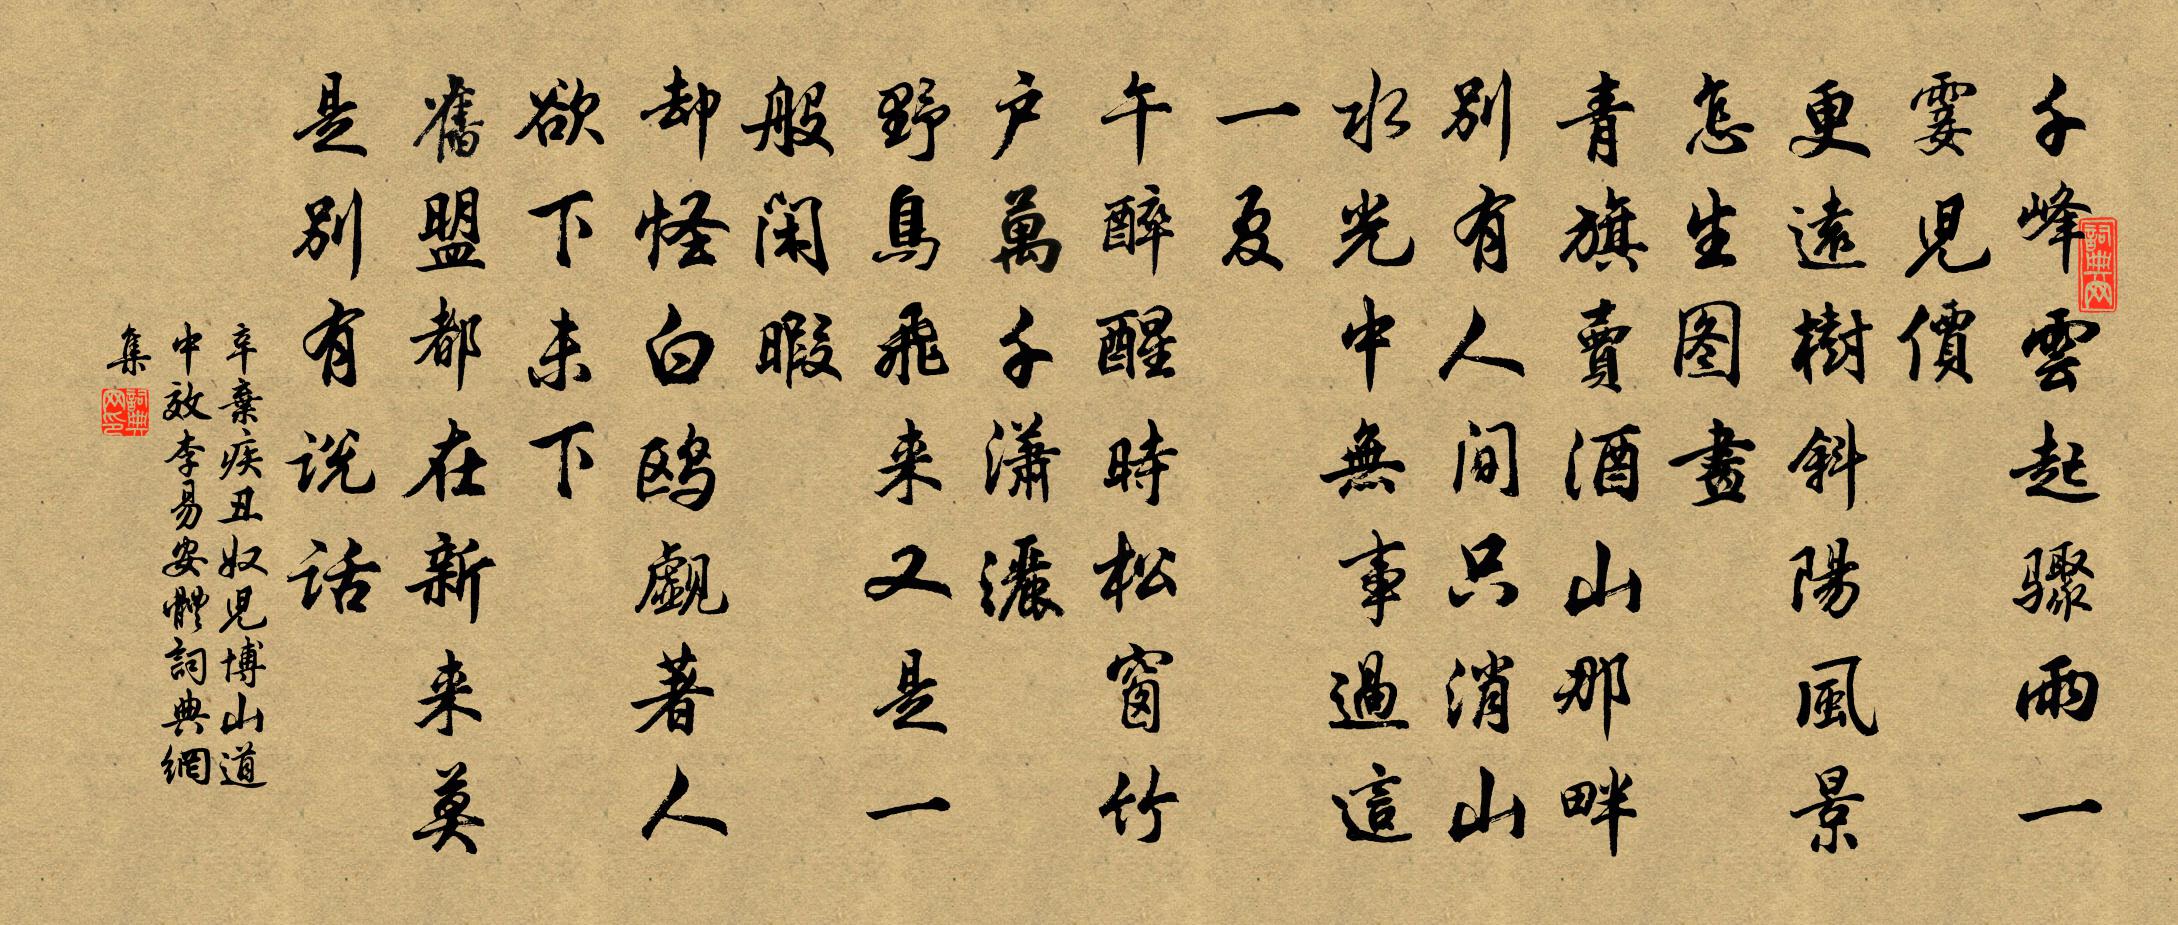 千峰雲起驟雨一
霎兒價
更遠樹斜陽風景
怎生图畫
青旗賣酒山那畔
別有人间只消山
水光中無事過這
一夏
午醉醒時松窗竹
户萬千潇灑
野鳥飛来又是一
般閑暇
却怪白鸥覷著人
欲下未下
舊盟都在新来莫
是別有说话
辛棄疾丑奴児博山道
中效李易安體詞典網
集
詞典网
詞典网印